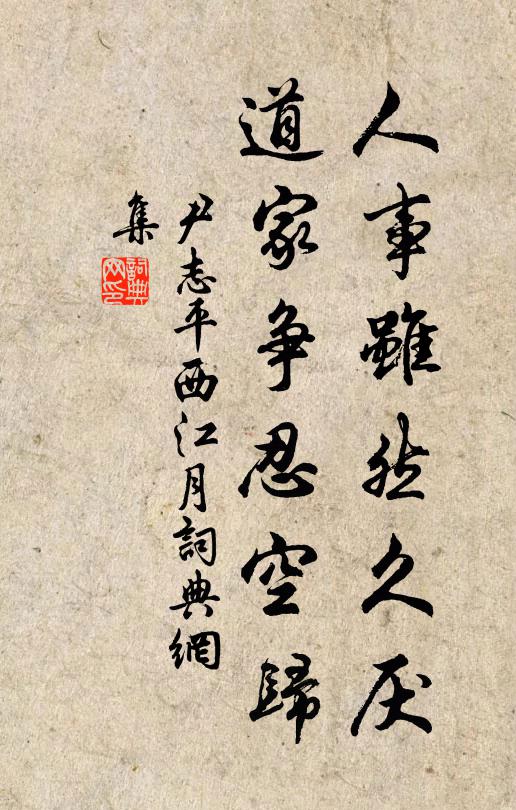 人事雖然久厌
道家争忍空歸
尹志平西江月詞典網
集
詞典
网印